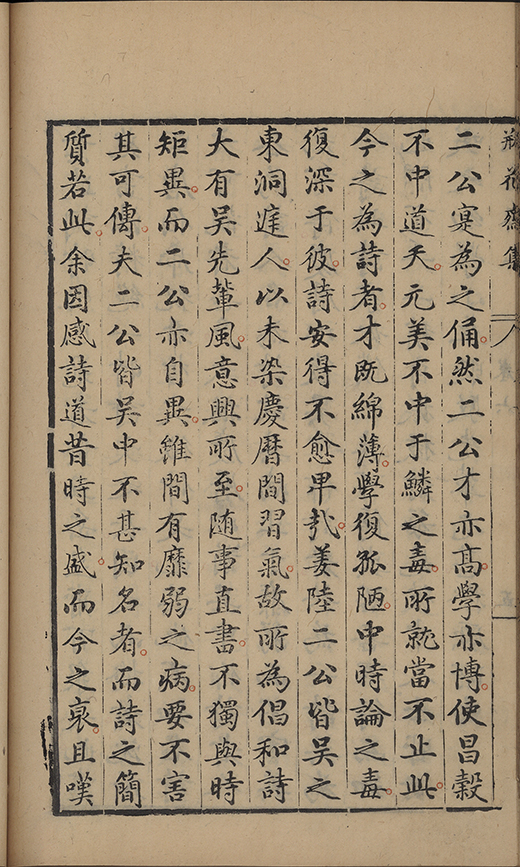 瓶花齋集
二公寔為之俑然二公才亦高學亦博使昌穀
不中道夭元美不中于鱗之毒所就當不止此
今之為詩者才既綿薄學復孤陋中時論之毒
復深于彼詩安得不愈卑哉姜陸二公皆吳之
東洞庭人以未染慶曆間習氣故所為倡和詩
大有吳先輩風意興所至隨事直書不獨與時
矩異而二公亦自異雖間有靡弱之病要不害
其可傳夫二公皆吳中不甚知名者而詩之簡
質若此余因感詩道昔時之盛而今之衰且嘆